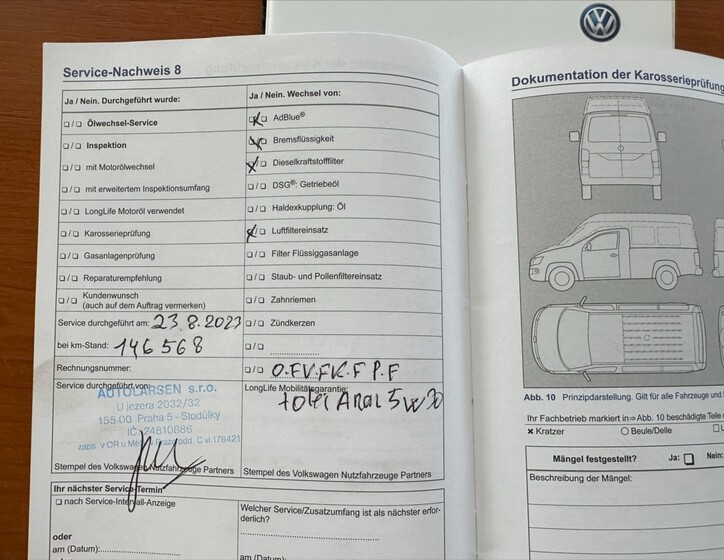 Service-Nachweis 8
Ja / Nein. Durchgeführt wurde:
☐/☐ Ölwechsel-Service
☐/☐ Inspektion
☐/☐ mit Motorölwechsel
☐/☐ mit erweitertem Inspektionsumfang
☐/☐ LongLife Motoröl verwendet
☐/☐ Karosserieprüfung
☐/☐ Gasanlagenprüfung
☐/☐ Reparaturempfehlung
☐/☐ Kundenwunsch
(auch auf dem Auftrag vermerken)
Service durchgeführt am: 23.8.2023
bei km-Stand: 146 568
Rechnungsnummer:
Service durchgeführt von:
AUTOLARSEN s.r.o.
U jezera 2032/32
155 00 Praha 5 - Stodůlky
IČ: 24810886
Stempel des Volkswagen Nutzfahrzeuge Partners
Ja / Nein. Wechsel von:
☒/☐ AdBlue®
☒/☐ Bremsflüssigkeit
☒/☐ Dieselkraftstofffilter
☐/☐ DSG®: Getriebeöl
☐/☐ Haldexkupplung: Öl
☒/☐ Luftfiltereinsatz
☐/☐ Filter Flüssiggasanlage
☐/☐ Staub- und Pollenfiltereinsatz
☐/☐ Zahnriemen
☐/☐ Zündkerzen
☐/☐
☐/☐
LongLife Mobilitätsgarantie:
5w30
Stempel des Volkswagen Nutzfahrzeuge Partners
Ihr nächster Service-Termin
☐ nach Service-Intervall-Anzeige
oder
am (Datum):
Welcher Service/Zusatzumfang ist als nächster erfor-
derlich?
am (Datum):
Dokumentation der Karosserieprüfung
Abb. 10 Prinzipdarstellung. Gilt für alle Fahrzeuge und
Ihr Fachbetrieb markiert in ⇒ Abb. 10 beschädigte Teile
× Kratzer ○ Beule/Delle ☐
Mängel festgestellt? Ja: ☐ Nein:
Beschreibung der Mängel: